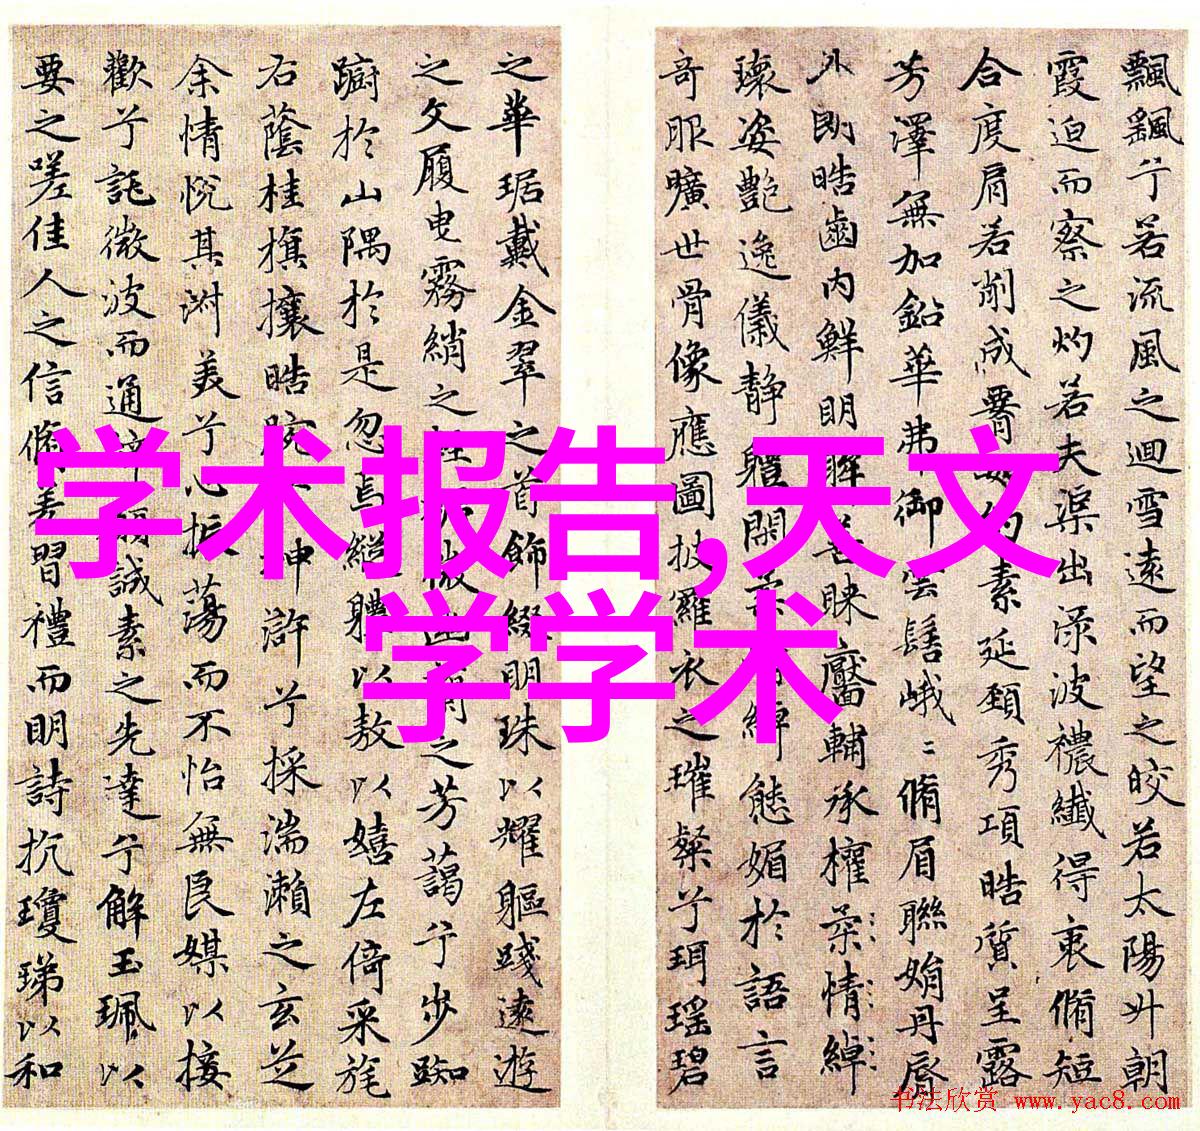 飄飖兮若流風之迴雪遠而望之皎若太陽升朝
霞迫而察之灼若夫渠出渌波襛纖得衷脩短
合度肩若削成約素延頸秀項皓質呈露
芳澤無加鉛華弗御雲髻峨〻脩眉聯娟丹脣
外朗皓齒内鮮明眸善睞靨輔承權柔情綽
瓌姿艷逸儀静體閑柔情綽態媚於語言
奇服曠世骨像應圖披羅衣之璀粲兮珥瑶碧
之華琚戴金翠之首飾綴明珠以耀軀踐遠遊
之文履曳霧綃之輕裾微幽蘭之芳藹兮步踟
蹰於山隅於是忽焉縱體以敖以嬉左倚采旄
右蔭桂旗攘皓腕於神滸兮採湍瀨之玄芝
余情悦其淑美兮心振蕩而不怡無良媒以接
歡兮託微波而通辭願誠素之先達兮解玉珮以
要之嗟佳人之信脩羌習禮而明詩抗瓊珶以和
学术报告,天文
学学术
书法欣赏 www.yac8.com